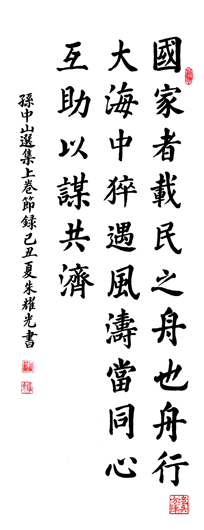 國家者載民之舟也舟行
大海中猝遇風濤當同心
互助以謀共濟
孫中山選集上卷節録己丑夏朱耀光書